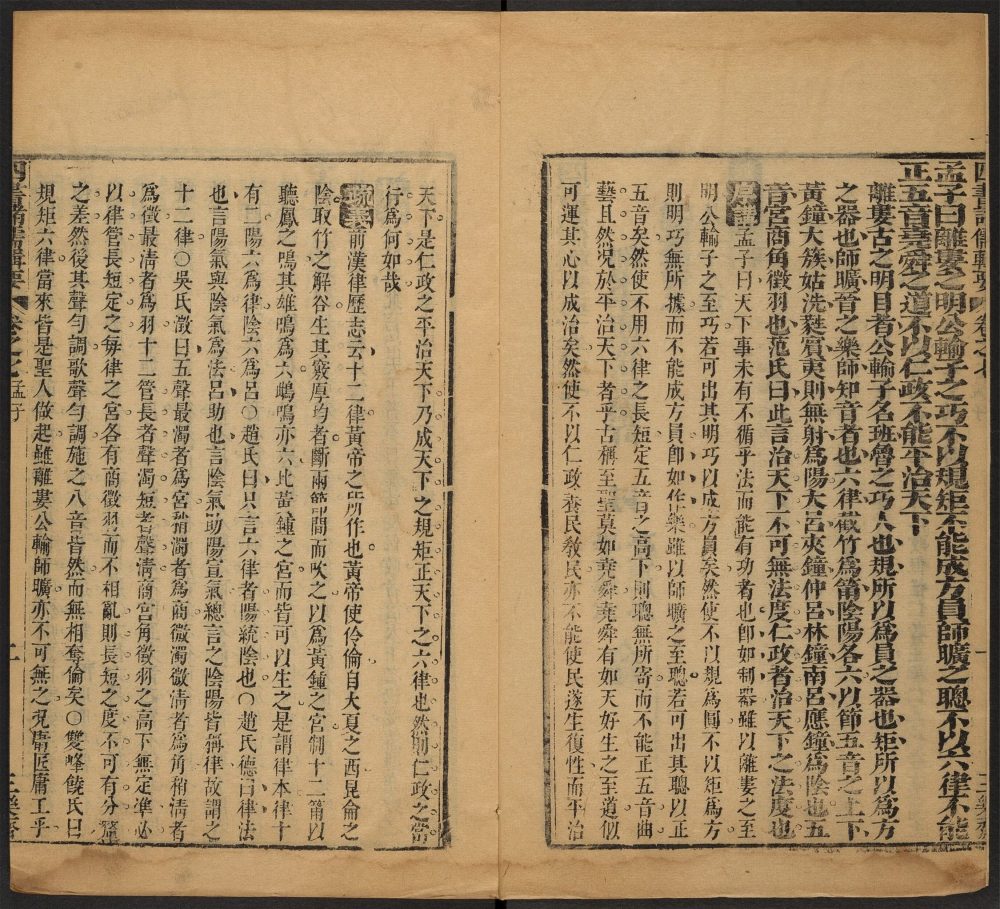 四書諸儒輯要 卷之七 三樂齋
孟子曰離婁之明公輸子之巧不以規矩不能成方員師曠之聰不以六律不能
正五音堯舜之道不以仁政不能平治天下
離婁古之明目者公輸子名班魯之巧人也規所以為員之器也矩所以為方
之器也師曠晉之樂師知音者也六律截竹為筩陰陽各六以節五音之上下
黃鐘大簇姑洗蕤賓夷則無射為陽大呂夾鐘仲呂林鐘南呂應鐘為陰也五
音宮商角徵羽也范氏曰此言治天下不可無法度仁政者治天下之法度也
孟子曰天下事未有不循乎法而能有功者也即如制器雖以離婁之至
明公輸子之至巧若可出其明巧以成方員矣然使不以規為圓不以矩為方
則明巧無所據而不能成方員即如作樂雖以師曠之至聰若可出其聰以正
五音矣然使不用六律之長短定五音之高下則聰無所寄而不能正五音曲
藝且然况於平治天下者乎古稱至聖莫如堯舜堯舜有如天好生之至道似
可運其心以成治矣然使不以仁政養民教民亦不能使民遂生復性而平治
天下是仁政之平治天下乃成天下之規矩正天下之六律也然則仁政之當
行為何如哉
前漢律歷志云十二律黃帝之所作也黃帝使伶倫自大夏之西昆侖之
陰取竹之解谷生其竅厚均者斷兩節間而吹之以為黃鍾之宮制十二筩以
聽鳳之鳴其雄鳴為六鵰鳴亦六比黃鍾之宮而皆可以生之是謂律本律十
有二陽六為律陰六為呂○趙氏曰只言六律者陽統陰也○趙氏德曰律法
也言陽氣與陰氣為法呂助也言陰氣助陽宣氣總言之陰陽皆稱律故謂之
十二律○吳氏澂曰五聲最濁者為宮稍濁者為商微濁微清者為角稍清者
為徵最清者為羽十二管長者聲濁短者聲清商宮角徵羽之高下無定準必
以律管長短定之每律之宮各有商徵羽而不相亂則長短之度不可有分釐
之差然後其聲勻調歌聲勻調施之八音皆然而無相奪倫矣○雙峰饒氏曰
規矩六律當來皆是聖人做起雖離婁公輸師曠亦不可無之况庸匠庸工乎
四書諸儒輯要 卷之七 孟子 三樂齋